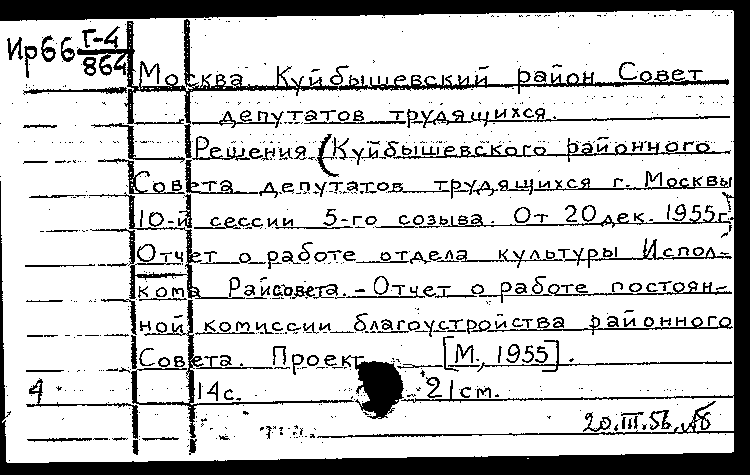 Ир66 Г-4
864
Москва. Куйбышевский район. Совет
депутатов трудящихся.
Решения (Куйбышевского районного
Совета депутатов трудящихся г. Москвы
10-й сессии 5-го созыва. От 20 дек. 1955г.)
Отчет о работе отдела культуры Испол-
кома Райсовета. - Отчет о работе постоян-
ной комиссии благоустройства районного
Совета. Проект. [М., 1955].
4 14с. 21см.
20.III.56.